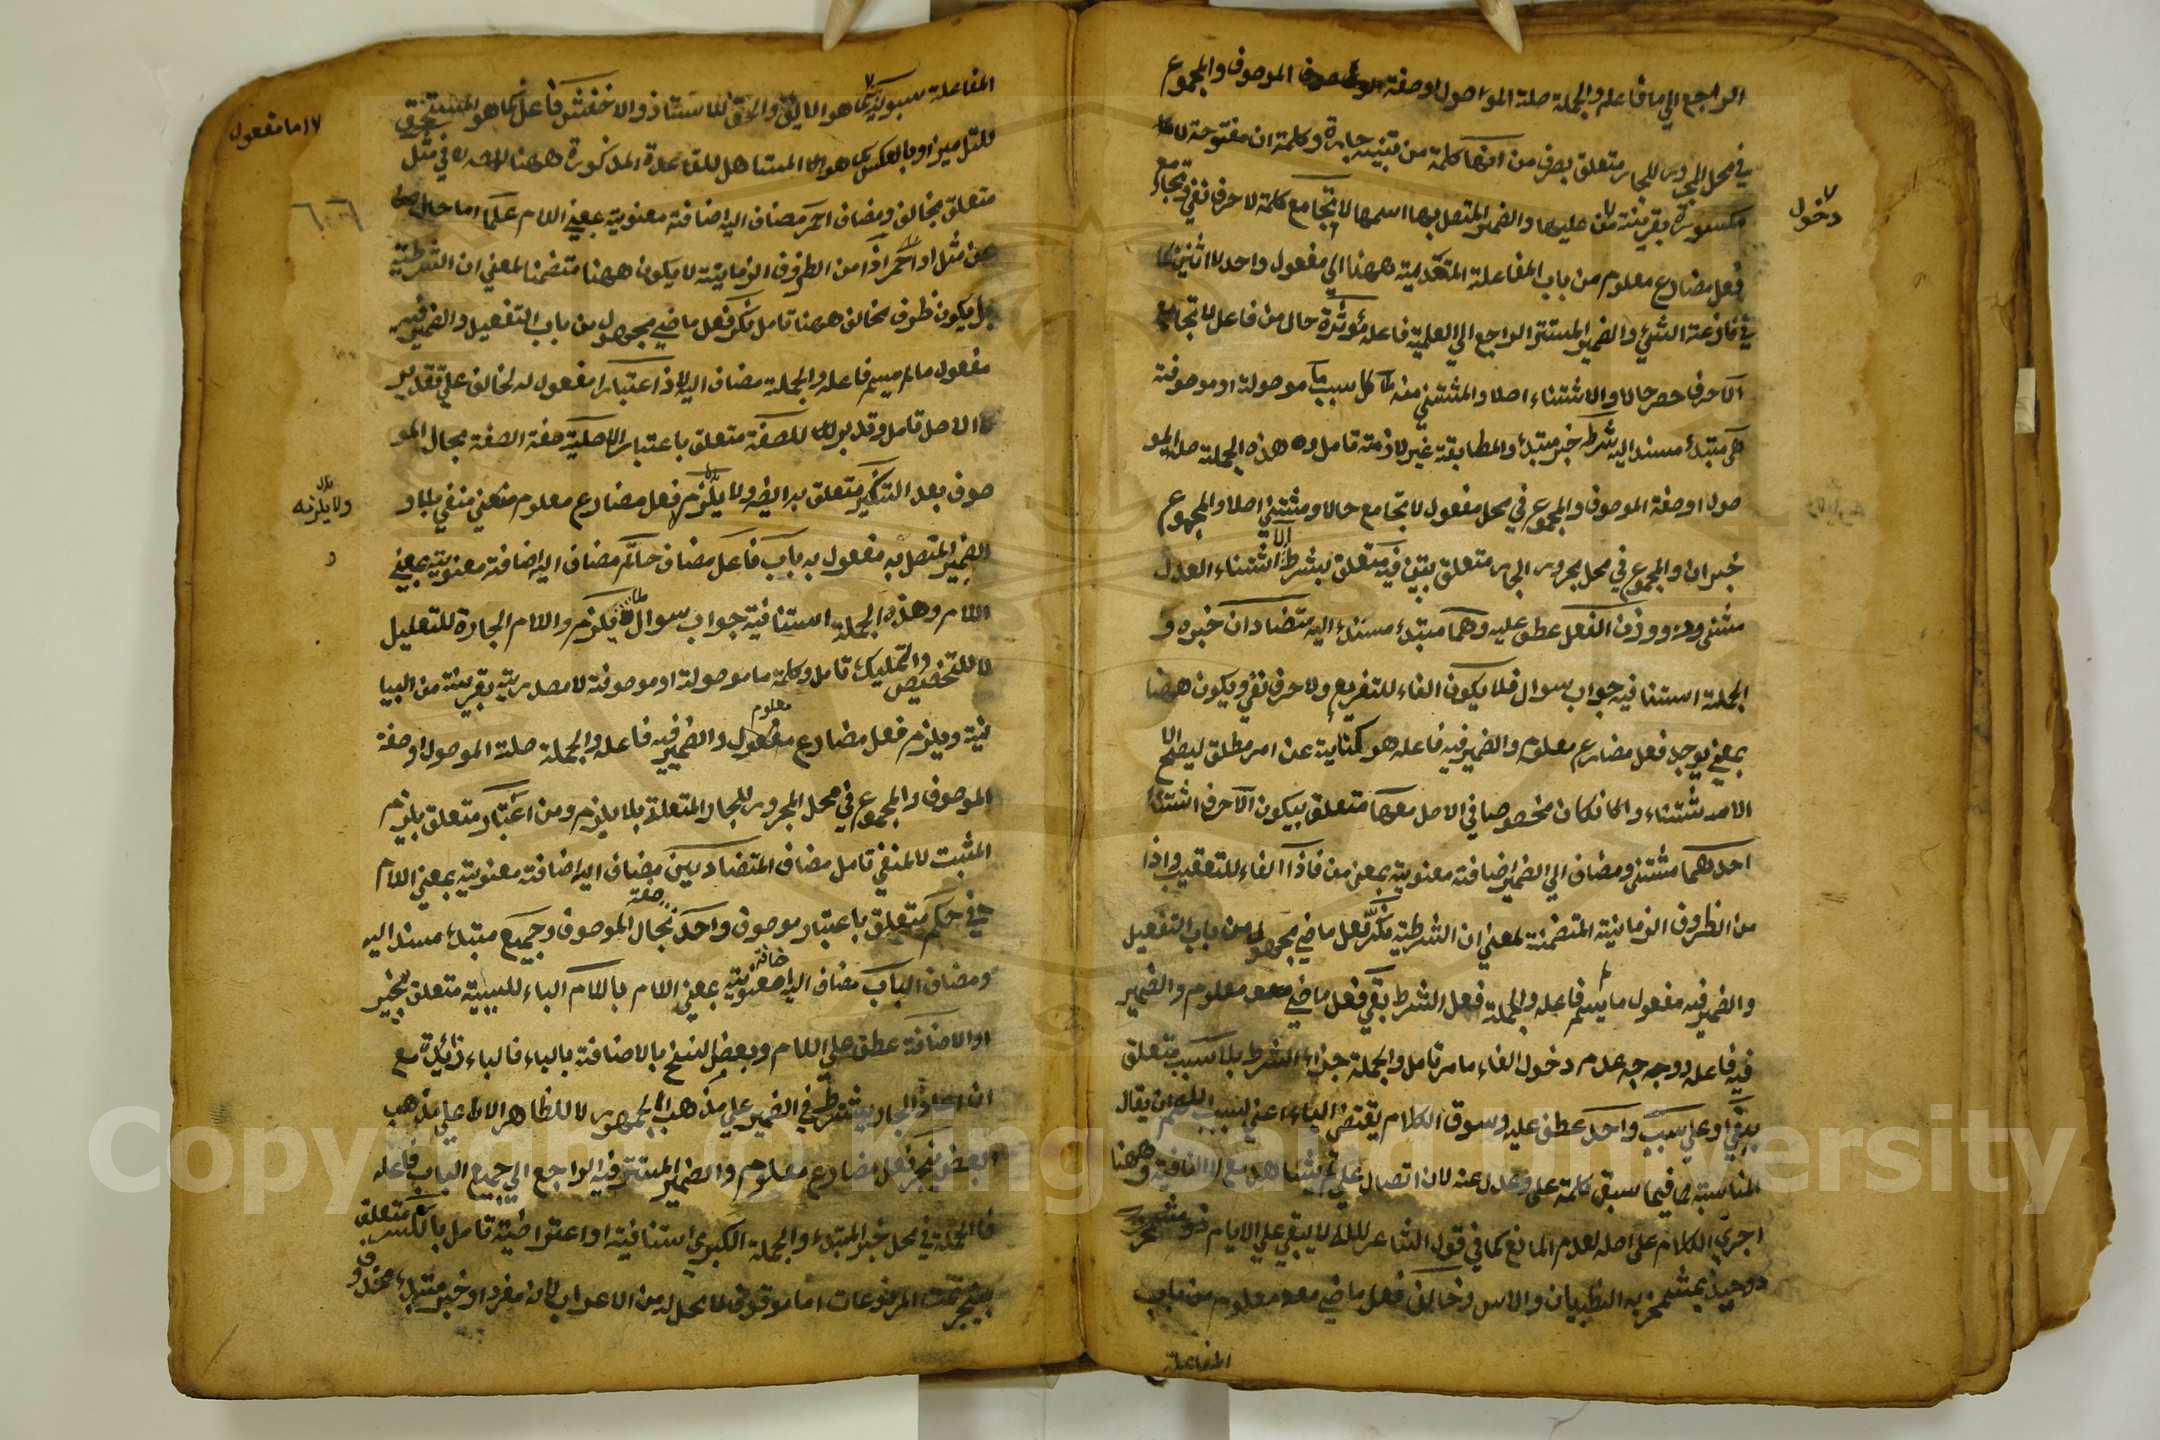 الراجع الي ما فاعله والجملة صلة الموصول او صفة الموصوف والمجموع
في محل المجرور للجار متعلق بصرف من انها كلمة من تبيينه جارة وكلمة ان مفتوحة لا
مكسورة بقرينة من عليها والضمير المتصل بها اسمها لا تجامع كلمة لا حرف نفي وتجامع
فعل مضارع معلوم من باب المفاعلة المتعدية ههنا الي مفعول واحد لا اثنين كما
في نازعته الشيء والضمير المستتر الراجع الي العلمية فاعله مؤثرة حال من فاعل لا تجامع
الا حرف حصر حالا والاستثناء اصلا والمستثني منه كل سبب ما موصولة او موصوفة
هي مبتدء مسند اليه شرط خبر مبتدء والمطابقة غير لازمة تامل وهذه الجملة صلة المو
صول او صفة الموصوف والمجموع في محل مفعول لا تجامع حالا ومستثني اصلا والمجموع
خبر ان والمجموع في محل مجرور الجار متعلق بتبين فيه متعلق بشرط الا استثناء العدل
مثنى ووزن الفعل عطف عليه وهما مبتدء مسند اليه متضادان خبره و
الجملة استينافية جواب سوال فلا يكون الفاء للتفريع ولا حرف نفي ويكون ههنا
بمعني يوجد فعل مضارع معلوم والضمير فيه فاعله هو كناية عن امر مطلق ليصح الا
الاستثناء والا كان مخصوصا في الاصل معهما متعلق بيكون الا حرف استثناء
احدهما مستثني ومضاف الي الضمير اضافة معنوية بمعني من فاذا الفاء للتعقيب واذا
من الظروف الزمانية المتضمنة لمعني ان الشرطية نكر فعل ماضي مجهول من باب التفعيل
والضمير فيه مفعول ما لم يسم فاعله والجملة فعل الشرط بقي فعل ماضي معلوم والضمير
فيه فاعله ووجه عدم دخول الفاء ما مر تامل والجملة جزاء الشرط بلا سبب متعلق
ببقي او علي سبب واحد عطف عليه وسوق الكلام يقتضي الباء اعني بسبب اللهم ان يقال
المناسبة فيما سبق كلمة علي وعدل عنه لان اتصال علي مع لا النافية وههنا
اجري الكلام علي اصله لعدم المانع كما في قول الشاعر لله لا يبقي علي الايام
ذو حيد بمشمخر به الظيان والاس وخالف فعل ماضي معلوم من باب
المفاعلة
دخول
المفاعلة سيبويه كما هو اللايق والحق للاستاذ والاخفش فاعل كما هو المستحق
للتلميذ او بالعكس للقاعدة المذكورة ههنا في مثل
متعلق بخالف ومضاف احمر مضاف اليه اضافة معنوية بمعني اللام علما اما حال
عن مثل او احمر اذا من الظروف الزمانية لا يكون ههنا متضمنا لمعني ان الشرطية
بل يكون ظرف لخالف ههنا تامل نكر فعل ماضي مجهول من باب التفعيل والضمير فيه
مفعول ما لم يسم فاعله والجملة مضاف اليه لاذا اعتبارا مفعول له لخالف علي تقدير
الاصل تامل للصفة متعلق باعتبارا الاصلية صفة الصفة بحال المو
صوف بعد التنكير متعلق به ايضا ولا يلزم فعل مضارع معلوم منفي بلا و
الضمير المتصل به مفعول به باب فاعل مضاف حاتم مضاف اليه اضافة معنوية بمعني
اللام وهذه الجملة استينافية جواب سوال لما يلزم واللام الجارة للتعليل
لا للتخصيص والتمليك تامل وكلمة ما موصولة او موصوفة لا مصدرية بقرينة من البيا
نية ويلزم فعل مضارع معلوم والضمير فيه فاعله والجملة صلة الموصول او صفة
الموصوف والمجموع في محل المجرور للجار المتعلق بلا يلزم ومن اعتبار متعلق بيلزم
المثبت لا المنفي تامل مضاف المتضادين مضاف اليه اضافة معنوية بمعني اللام
في حكم متعلق باعتبار موصوف واحد صفة بحال الموصوف وجميع مبتدء مسند اليه
ومضاف الباب مضاف اليه اضافة معنوية بمعني اللام باللام الباء للسببية متعلق بينجر
او الاضافة عطف علي اللام وبعض النسخ بالاضافة بالباء فالباء زائدة مع
ان اعادة الجار يشترط في الضمير علي مذهب الجمهور لا للظاهر الا علي مذهب
البعض ينجر فعل مضارع معلوم والضمير المستتر فيه الراجع الي جميع الباب فاعله
فالجملة في محل خبر المبتدء والجملة الكبري استينافية او اعتراضية تامل بالكسر متعلق
بينجر تمت المرفوعات اما موقوف لا محل له من الاعراب لانه مفرد او خبر مبتدء محذوف
اما مفعول
ولا يلزمه